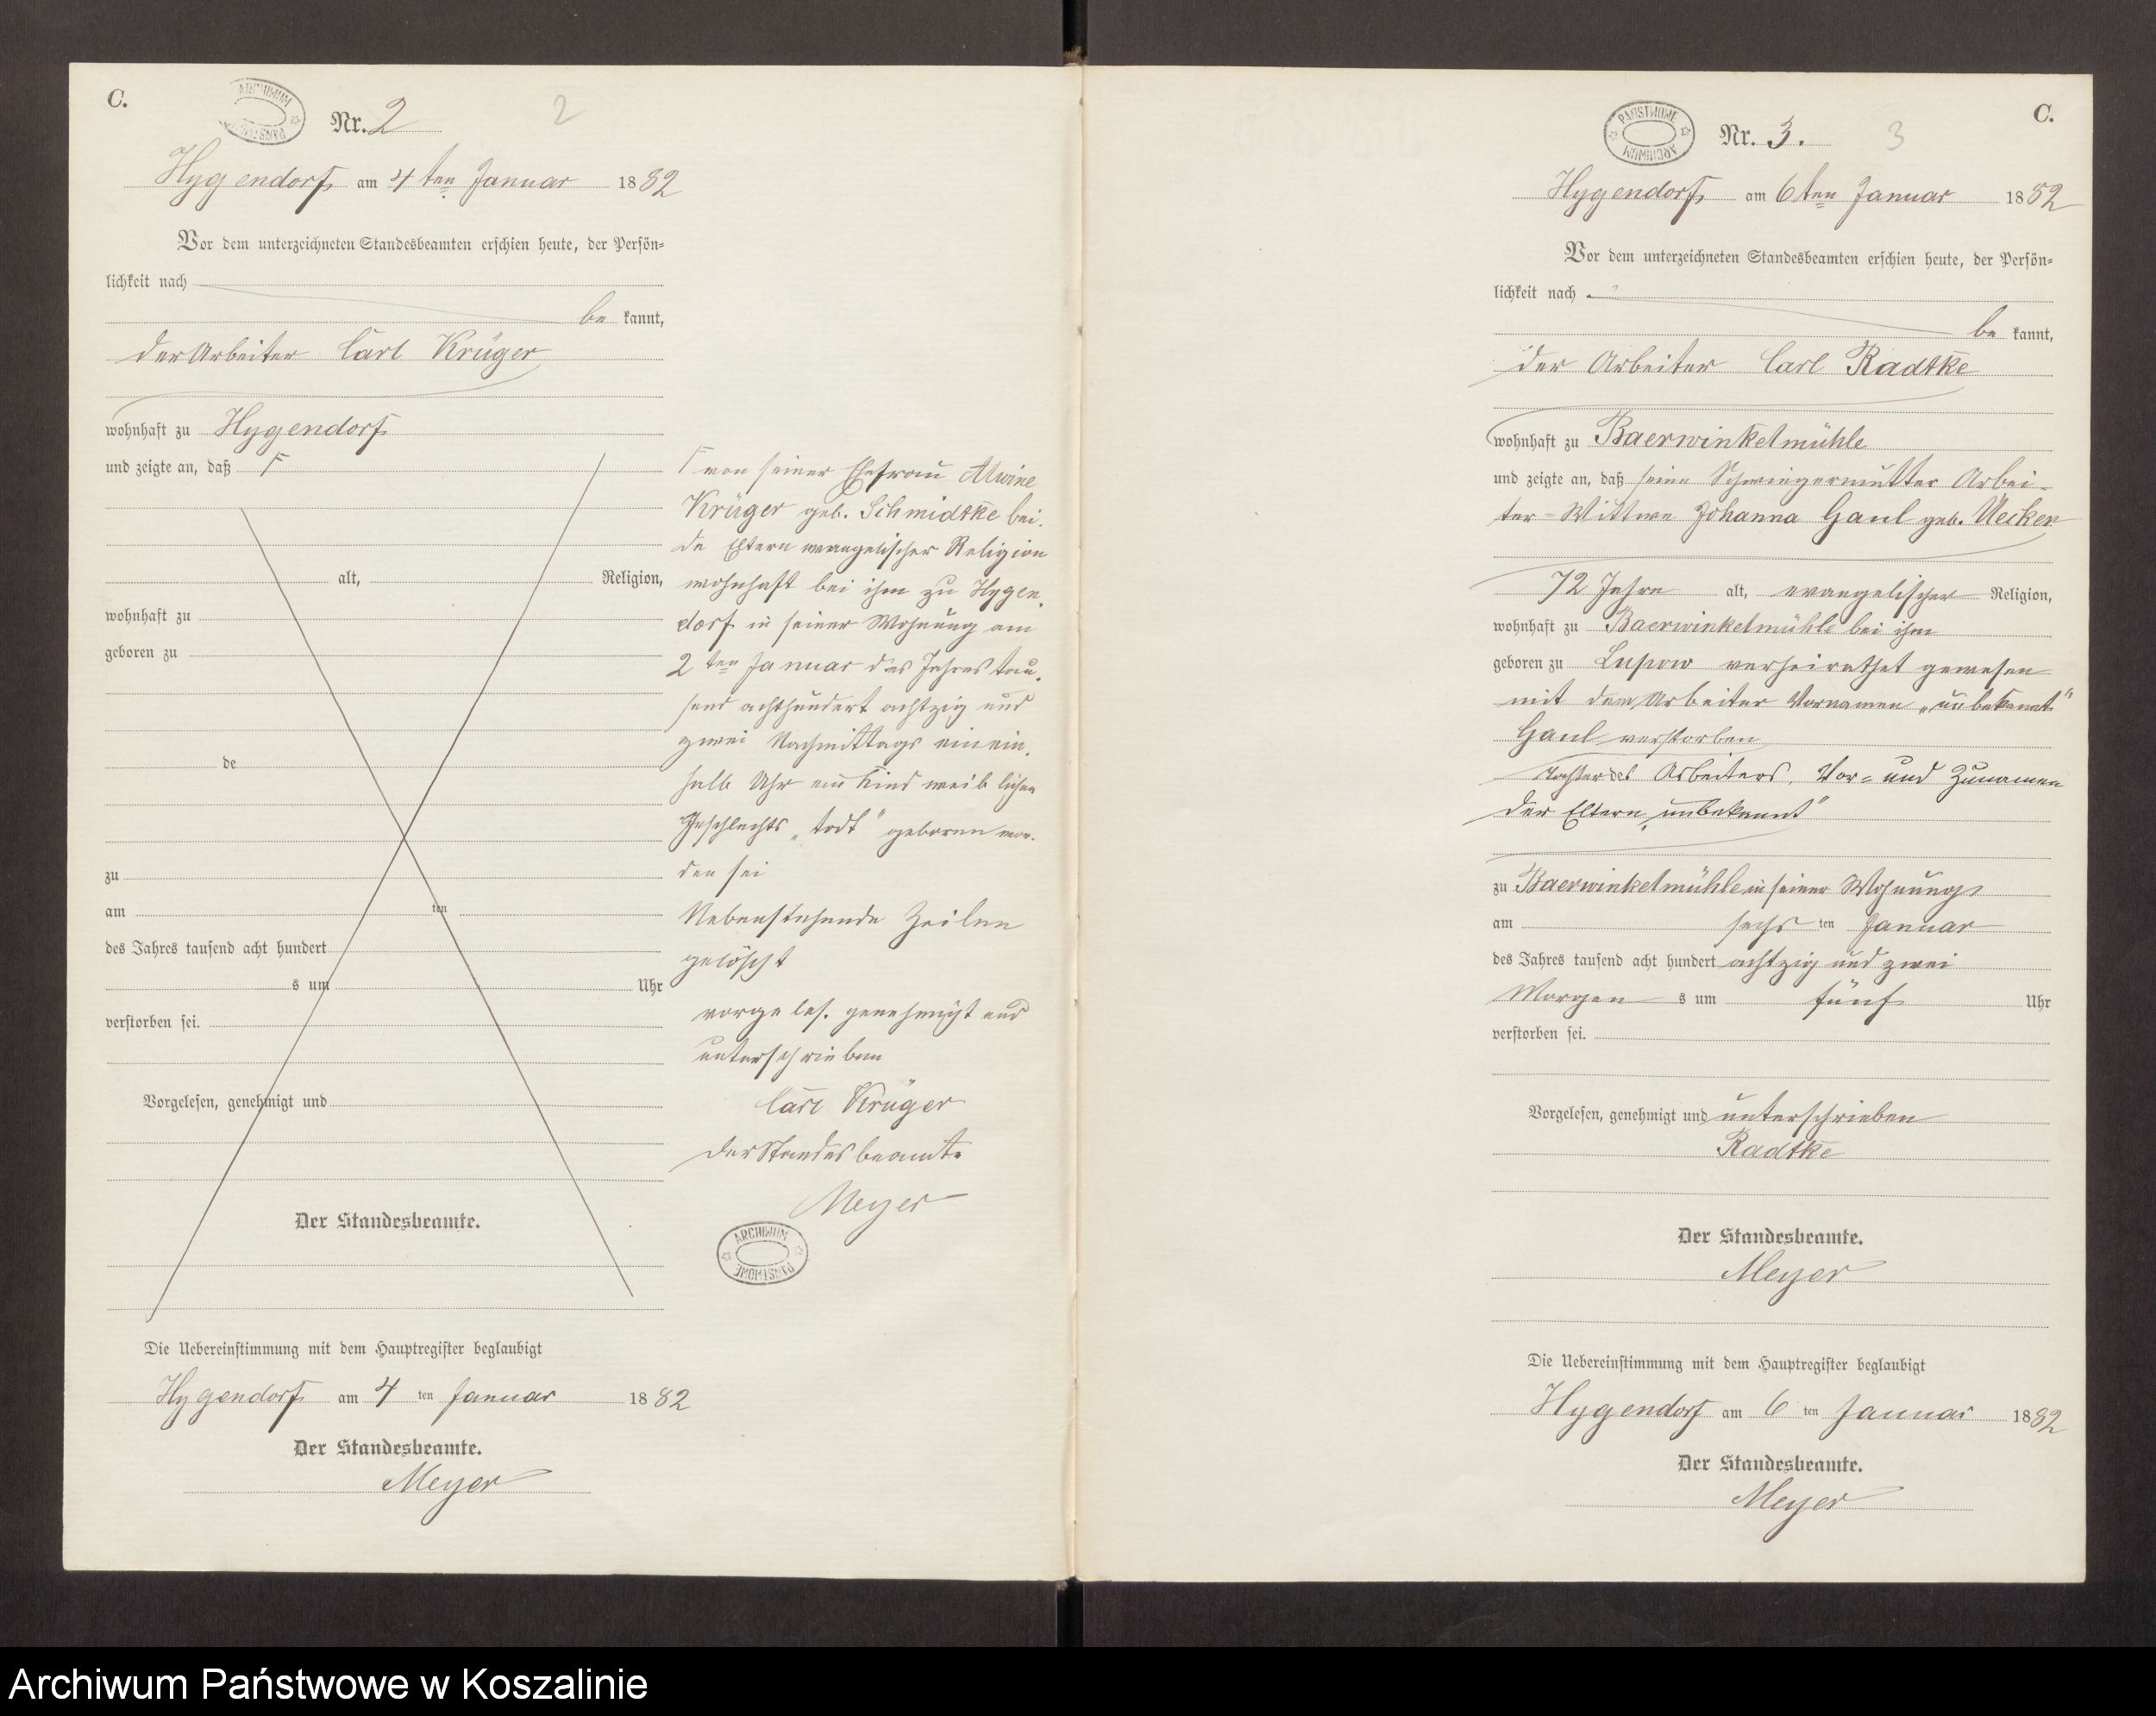 C.
ARCHIWUM PAŃSTWOWE
Nr. 2
2
Hygendorf am 4ten Januar 1882
Vor dem unterzeichneten Standesbeamten erschien heute, der Persön-
lichkeit nach
be kannt,
der Arbeiter Carl Krüger
wohnhaft zu Hygendorf
und zeigte an, daß Γ
alt, Religion,
wohnhaft zu
geboren zu
de
zu
am ten
des Jahres tausend acht hundert
s um Uhr
verstorben sei.
Vorgelesen, genehmigt und
Der Standesbeamte.
Γ von seiner Ehefrau Alwine
Krüger geb. Schmidtke bei-
de Eltern evangelischer Religion
wohnhaft bei ihm zu Hygen-
dorf in seiner Wohnung am
2ten Januar des Jahres tau-
send achthundert achtzig und
zwei Nachmittags ein ein
halb Uhr ein Kind weiblichen
Geschlechts „todt" geboren wor-
den sei
Nebenstehende Zeilen
gelöscht
vorgeles. genehmigt und
unterschrieben
Carl Krüger
Der Standesbeamte
Meyer
ARCHIWUM PAŃSTWOWE
Die Uebereinstimmung mit dem Hauptregister beglaubigt
Hygendorf am 4 ten Januar 1882
Der Standesbeamte.
Meyer
C.
PAŃSTWOWE ARCHIWUM
Nr. 3.
3
Hygendorf am 6ten Januar 1882
Vor dem unterzeichneten Standesbeamten erschien heute, der Persön-
lichkeit nach
be kannt,
der Arbeiter Carl Radtke
wohnhaft zu Baerwinkelmühle
und zeigte an, daß seine Schwiegermutter Arbei-
ter-Wittwe Johanna Gaul geb. Uecker
72 Jahre alt, evangelischer Religion,
wohnhaft zu Baerwinkelmühle bei ihm
geboren zu Lupow verheirathet gewesen
mit dem Arbeiter Vornamen „unbekannt"
Gaul verstorben
Tochter des Arbeiters, Vor- und Zunamen
der Eltern „unbekannt"
zu Baerwinkelmühle in seiner Wohnung
am sechs ten Januar
des Jahres tausend acht hundert achtzig und zwei
Morgen s um fünf Uhr
verstorben sei.
Vorgelesen, genehmigt und unterschrieben
Radtke
Der Standesbeamte.
Meyer
Die Uebereinstimmung mit dem Hauptregister beglaubigt
Hygendorf am 6 ten Januar 1882
Der Standesbeamte.
Meyer
Archiwum Państwowe w Koszalinie